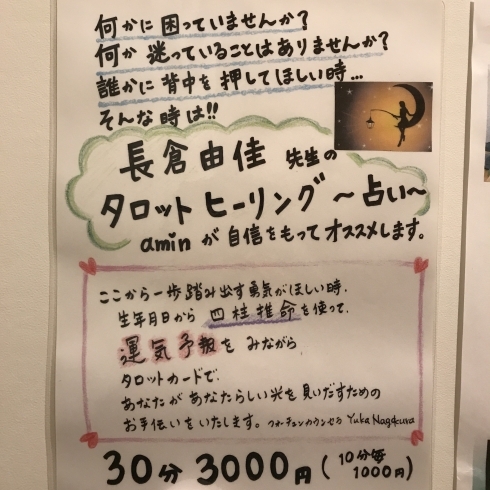 何かに困っていませんか?
何か迷っていることはありませんか?
誰かに背中を押してほしい時...
そんな時は!!
長倉由佳 先生の
タロットヒーリング〜占い〜
aminが自信をもってオススメします。
ここから一歩踏み出す勇気がほしい時、
生年月日から 四柱推命を使って、
運気予報を みながら
タロットカードで、
あなたがあなたらしい光を見いだすための
お手伝いをいたします。フォーチュンカウンセラ Yuka Nagakura
30分 3000円(10分毎 1000円)